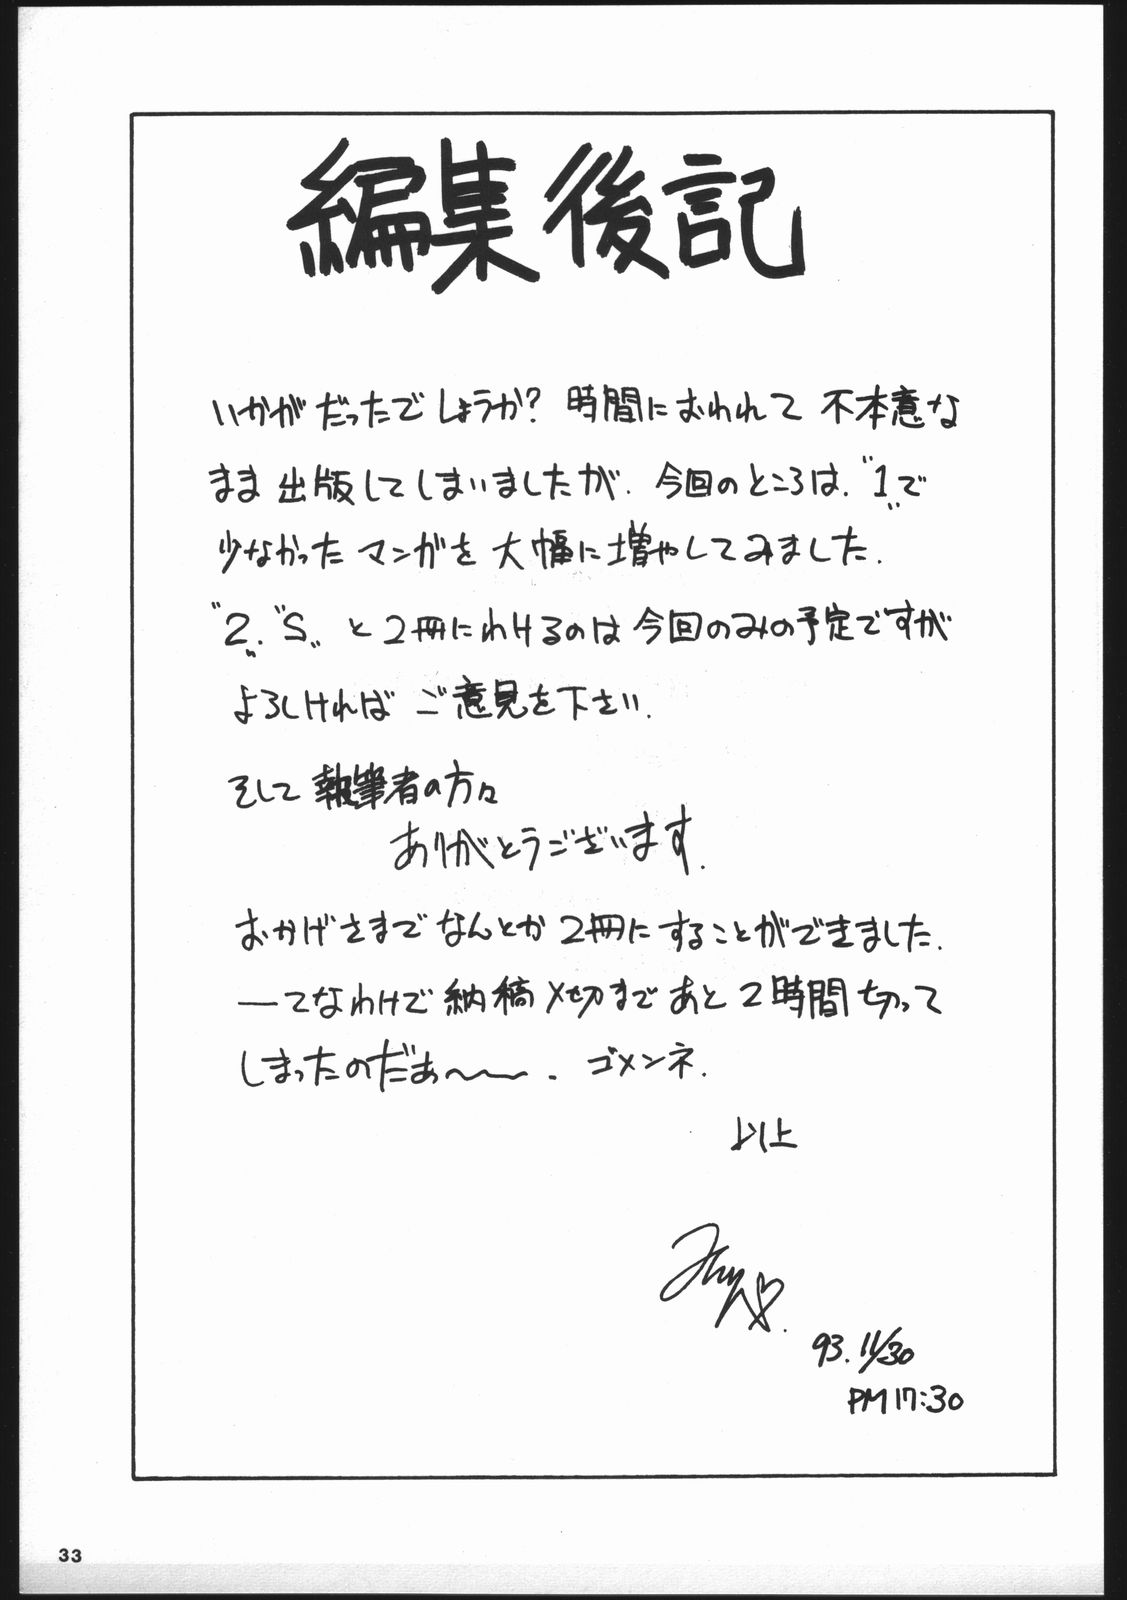 編集後記
いかがだったでしょうか? 時間におわれて 不本意な
まま 出版してしまいましたが. 今回のところは. "1"で
少なかった マンガを 大幅に増やしてみました.
"2". "S" と 2冊にわけるのは 今回のみの予定ですが
よろしければ ご意見を下さい.
そして 執筆者の方々
ありがとうございます.
おかげさまで なんとか 2冊にすることができました.
―てなわけで 納稿〆切まで あと2時間切って
しまったのだぁ〜〜. ゴメンネ.
以上
93. 11/30
PM 17:30
33